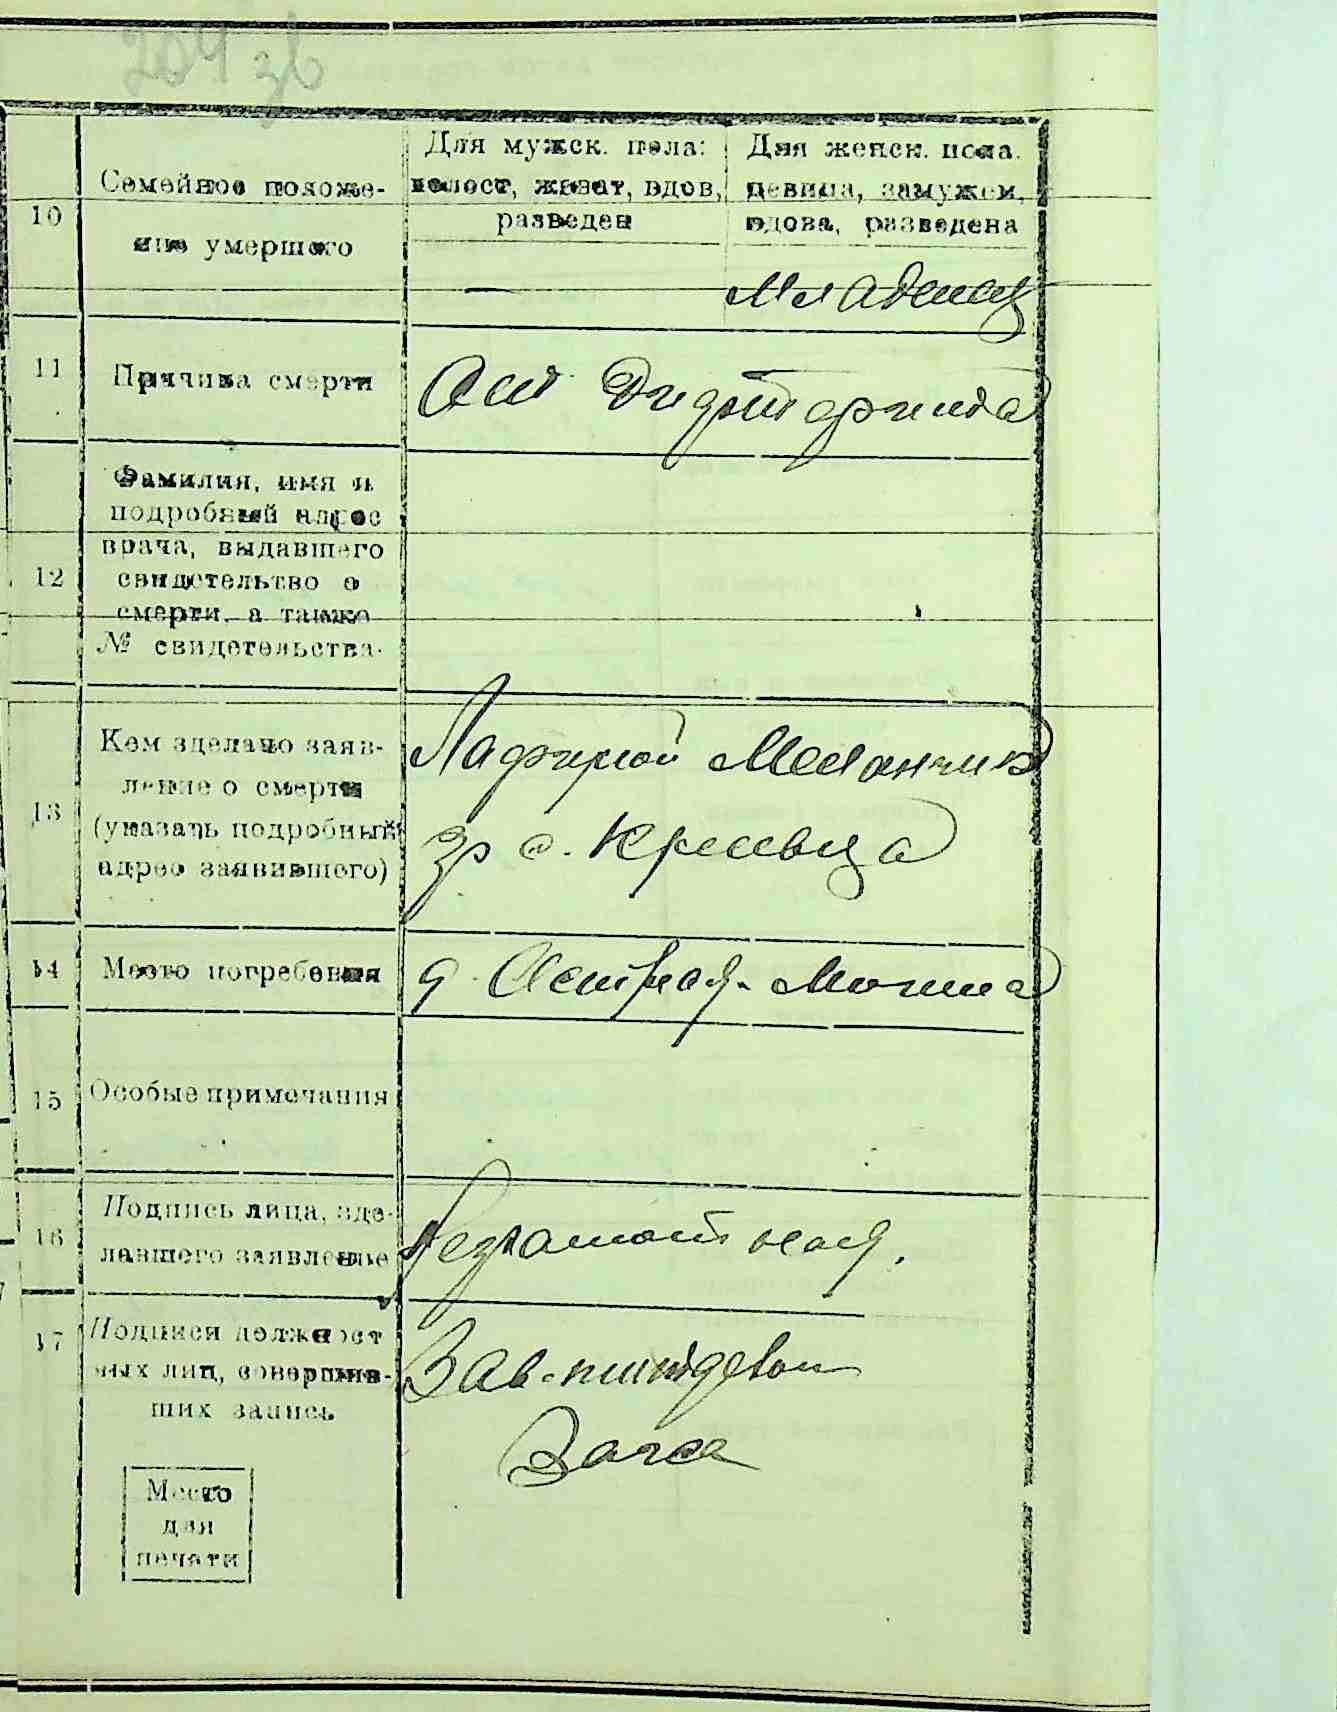 204 зв
10
Семейное положе-
ние умершого
Для мужск. пола:
холост, женат, вдов,
разведен
Для женск. пола.
девица, замужем,
вдова, разведена
— младенец
11
Причина смерти
От Дифтерита
12
Фамилия, имя и
подробный адрес
врача, выдавшего
свидетельство о
смерти, а также
№ свидетельства.
13
Кем зделано заяв-
ление о смерти
(указать подробный
адрес заявившего)
гр с.
14
Место погребения
д. Острая-Могила
15
Особые примечания
16
Подпись лица, зде-
лавшего заявление
Неграмотная.
17
Подписи должност
ных лиц, совершив-
ших запись
Зав.
Место
для
печати